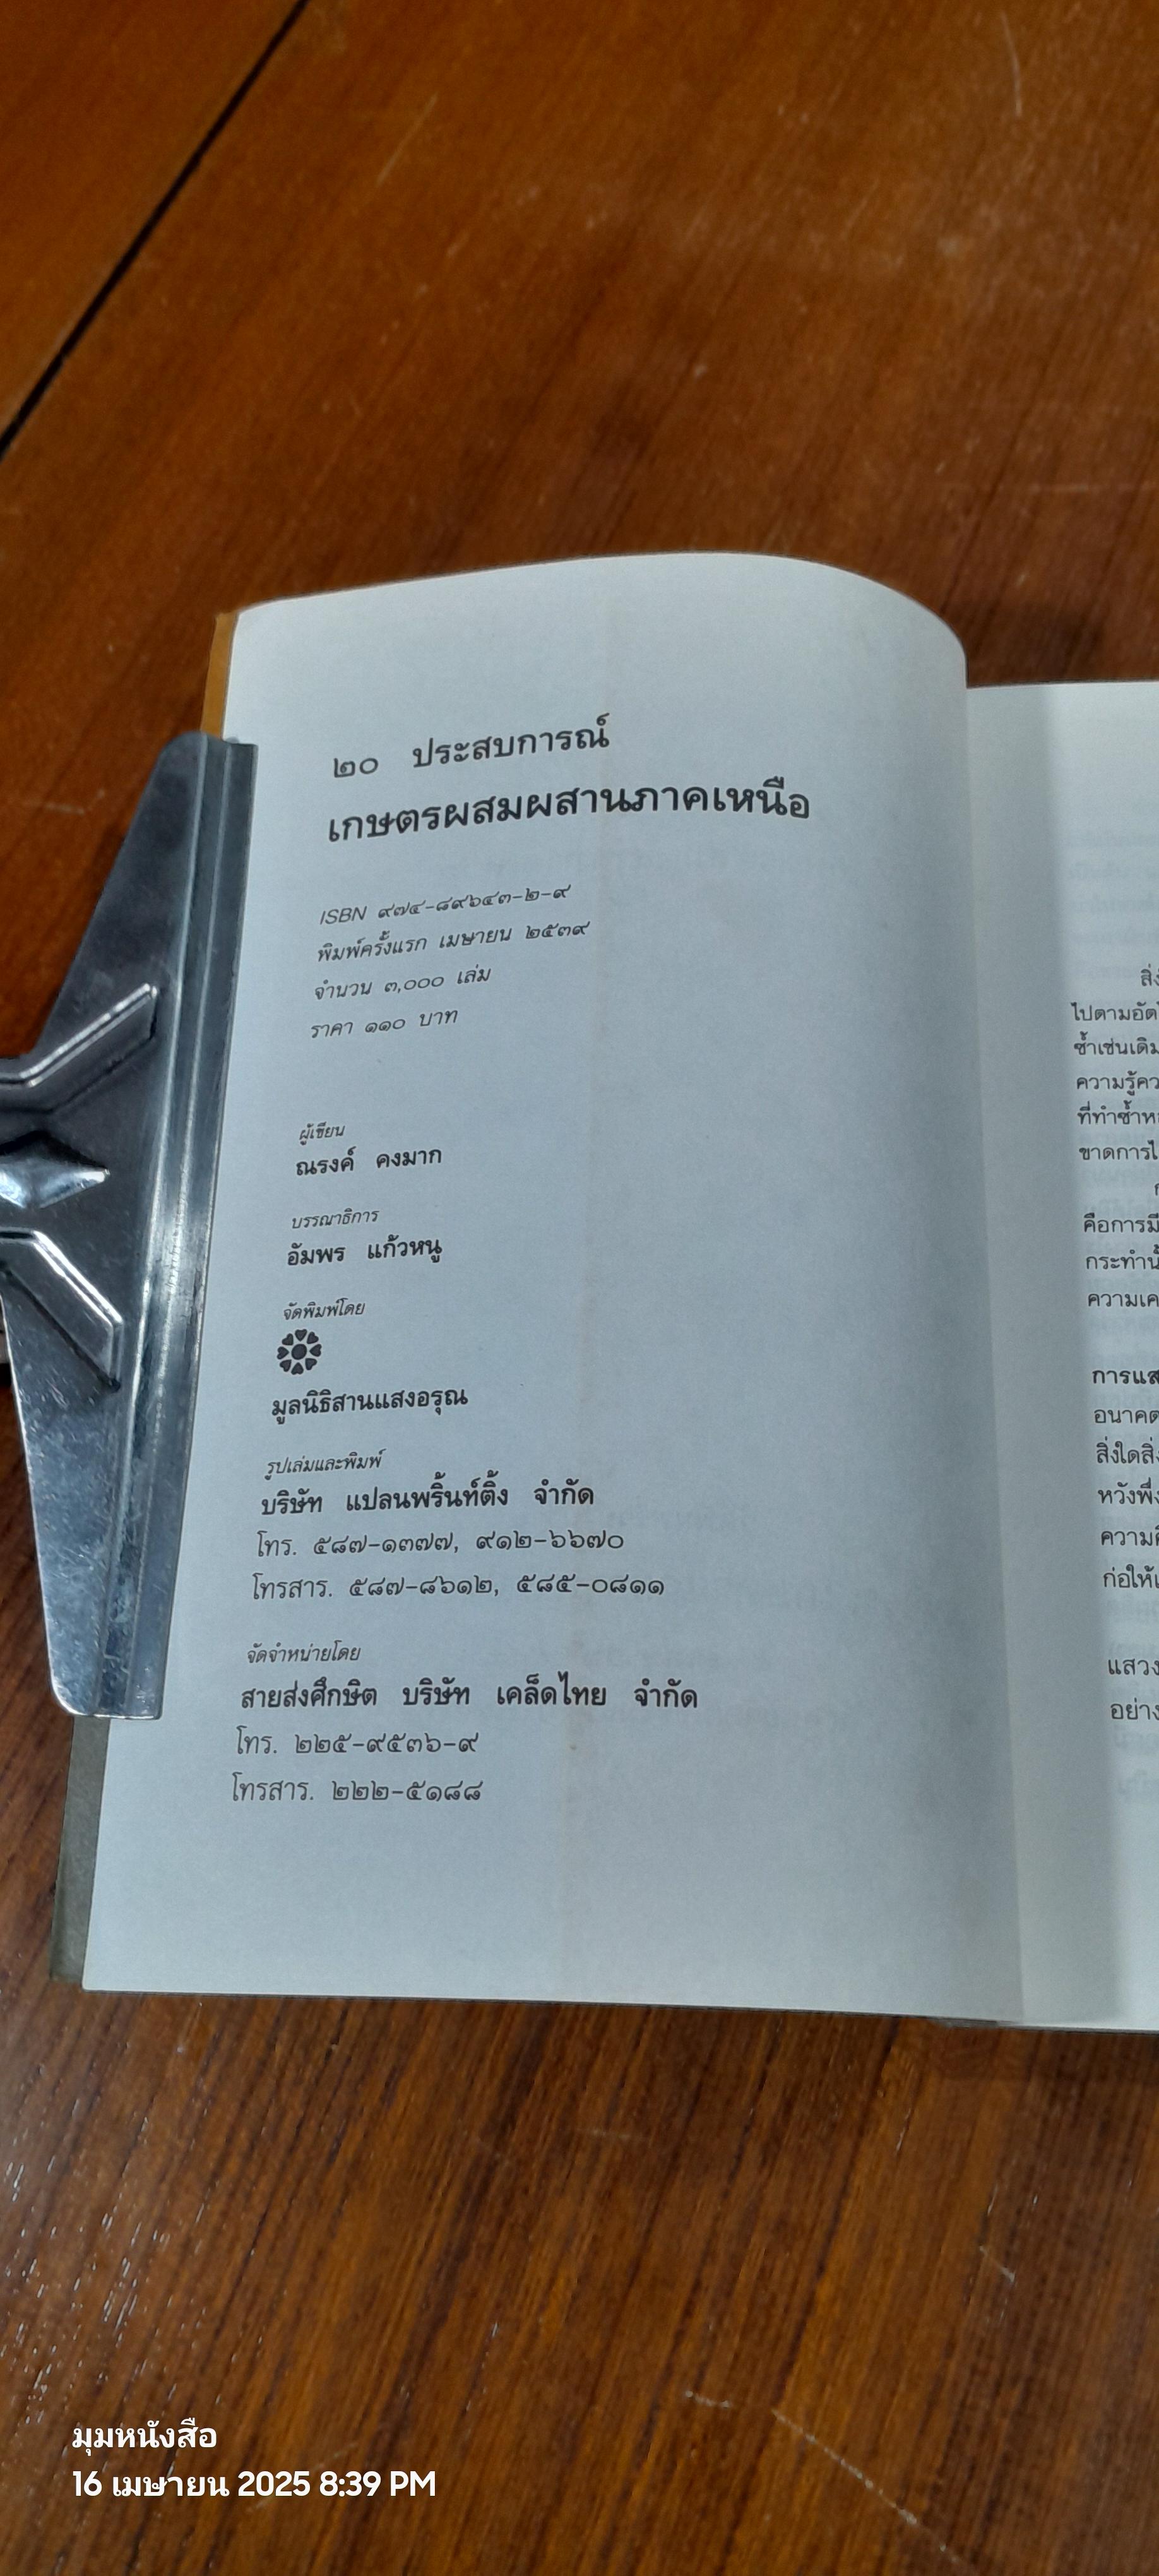 ๒๐ ประสบการณ์
เกษตรผสมผสานภาคเหนือ
ISBN ๙๗๔-๘๙๖๔๓-๒-๙
พิมพ์ครั้งแรก เมษายน ๒๕๓๙
จำนวน ๓,๐๐๐ เล่ม
ราคา ๑๑๐ บาท
ผู้เขียน
ณรงค์ คงมาก
บรรณาธิการ
อัมพร แก้วหนู
จัดพิมพ์โดย
มูลนิธิสานแสงอรุณ
รูปเล่มและพิมพ์
บริษัท แปลนพริ้นท์ติ้ง จำกัด
โทร. ๕๘๗-๑๓๗๗, ๙๑๒-๖๖๗๐
โทรสาร. ๕๘๗-๘๖๑๒, ๕๘๕-๐๘๑๑
จัดจำหน่ายโดย
สายส่งศึกษิต บริษัท เคล็ดไทย จำกัด
โทร. ๒๒๕-๙๕๓๖-๙
โทรสาร. ๒๒๒-๕๑๘๘
สิ่ง
ไปตามอัต
ซ้ำเช่นเดิม
ความรู้คว
ที่ทำซ้ำห
ขาดการ
คือการมี
กระทำนั้
ความเค
การแส
อนาคต
สิ่งใดสิ่ง
หวังพึ่ง
ความ
ก่อให้
แสวง
อย่าง
มุมหนังสือ
16 เมษายน 2025 8:39 PM